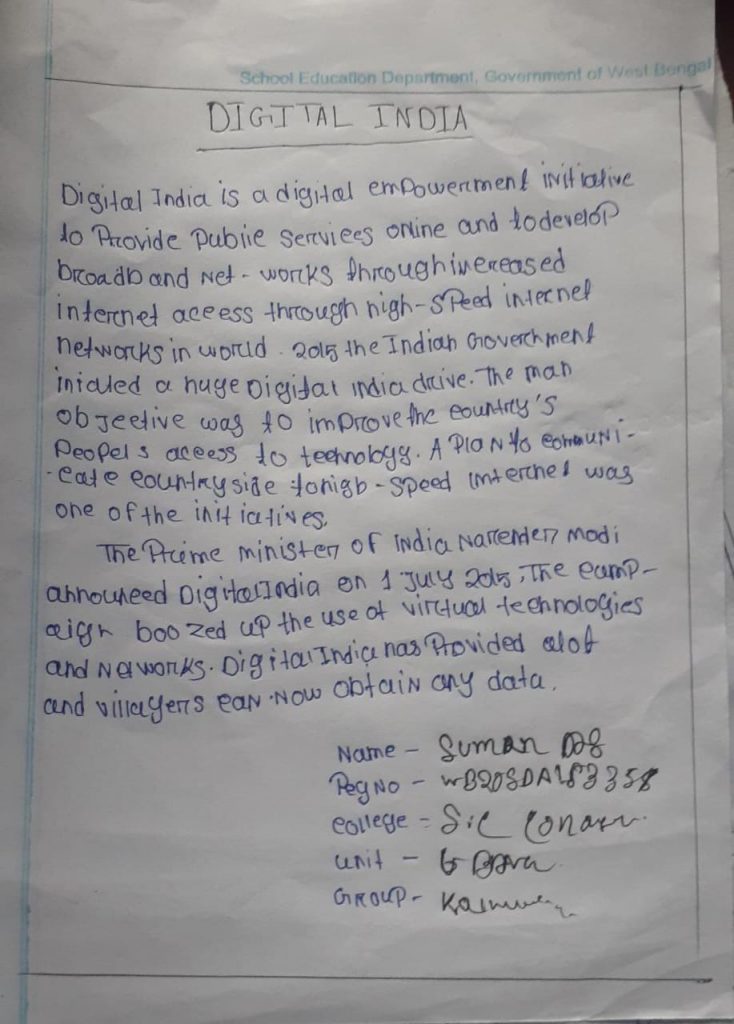 School Education Department, Government of West Bengal
DIGITAL INDIA
Digital India is a digital empowerment initiative
to Provide Publie serviees online and to develop
broadband net - works through inereased
internet aeeess through high-speed internet
networks in world. 2015 the Indian Goverchment
iniated a huge Digital india drive. The man
objeetive was to improve the eountry's
Peopel s aeeess to technology. A Plan to eommuni-
-eate eountryside to higb-speed internet was
one of the initiatives.
The Prime minister of india Narender modi
annouheed Digital India on 1 July 2015, The eamp-
aign boozed up the use of virtual technologies
and Networks. Digital India has Provided alot
and villagers ean now obtain any data.
Name - Suman Das
Reg No -
eollege =
unit -
Group -